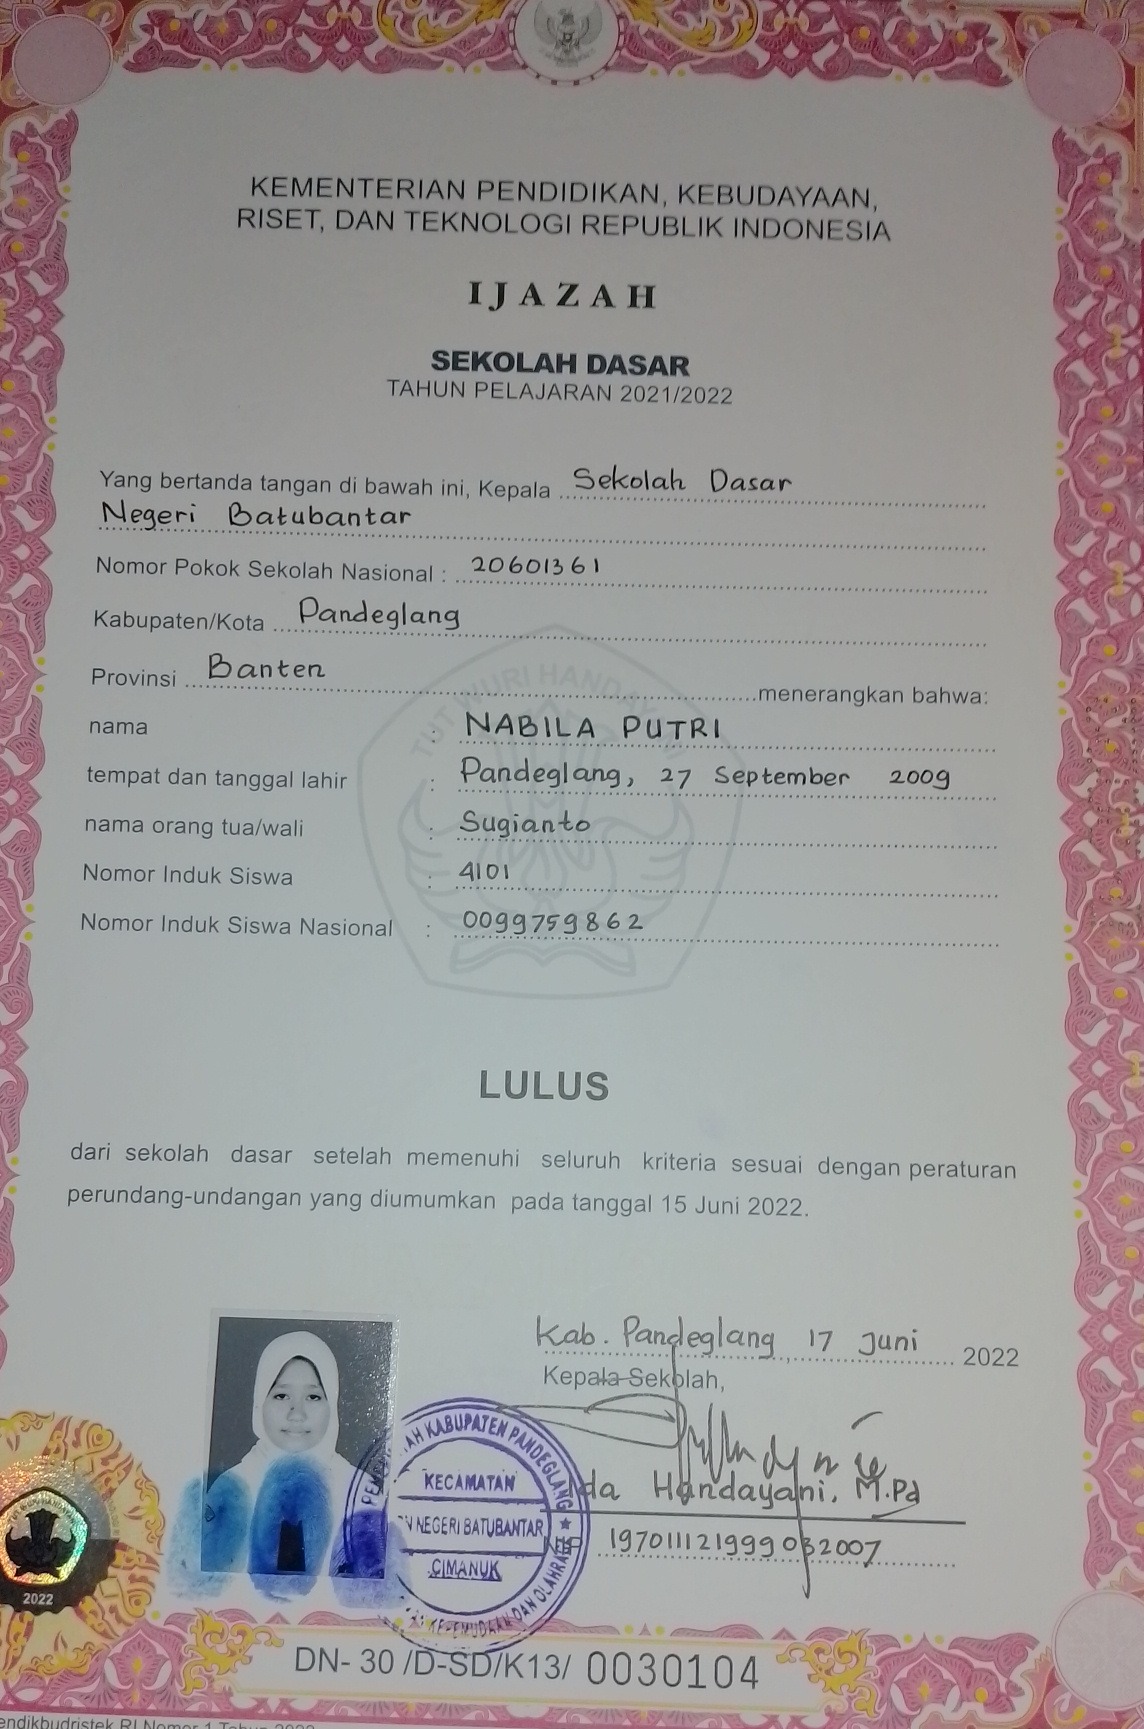 KEMENTERIAN PENDIDIKAN, KEBUDAYAAN,
RISET, DAN TEKNOLOGI REPUBLIK INDONESIA
IJAZAH
SEKOLAH DASAR
TAHUN PELAJARAN 2021/2022
Yang bertanda tangan di bawah ini, Kepala Sekolah Dasar
Negeri Batubantar
Nomor Pokok Sekolah Nasional : 20601361
Kabupaten/Kota Pandeglang
Provinsi Banten menerangkan bahwa:
TUT WURI HANDAYANI
nama : NABILA PUTRI
tempat dan tanggal lahir : Pandeglang, 27 September 2009
nama orang tua/wali : Sugianto
Nomor Induk Siswa : 4101
Nomor Induk Siswa Nasional : 0099759862
LULUS
dari sekolah dasar setelah memenuhi seluruh kriteria sesuai dengan peraturan
perundang-undangan yang diumumkan pada tanggal 15 Juni 2022.
Kab. Pandeglang, 17 Juni 2022
Kepala Sekolah,
da Handayani, M.Pd
KABUPATEN PANDEGLANG
KECAMATAN
NEGERI BATUBANTAR
CIMANUK
DAN OLAHRAGA
197011121999032007
2022
DN- 30 /D-SD/K13/ 0030104